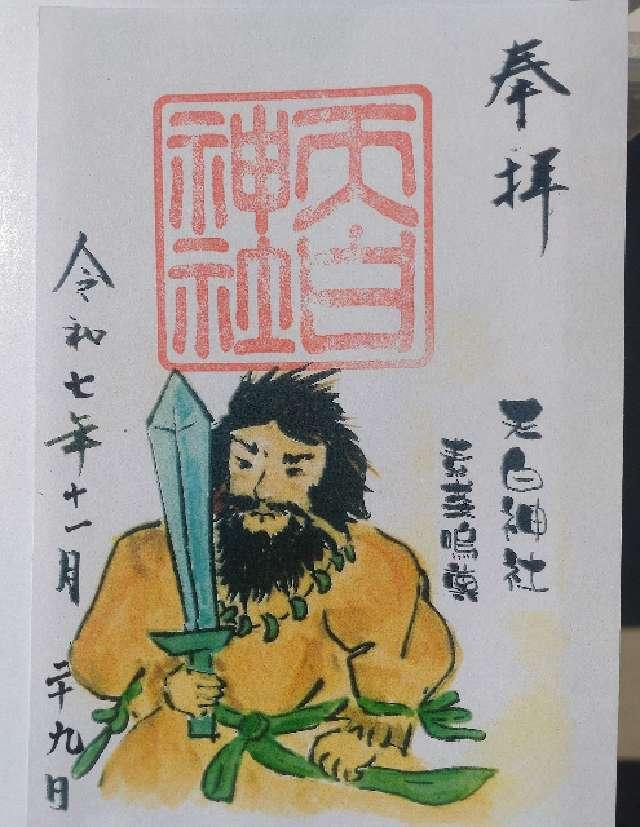 奉拝
天白神社
素盞嗚尊
天白
神社
令和七年十一月二十九日